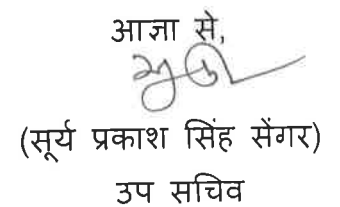 आज्ञा से,
(सूर्य प्रकाश सिंह सेंगर)
उप सचिव